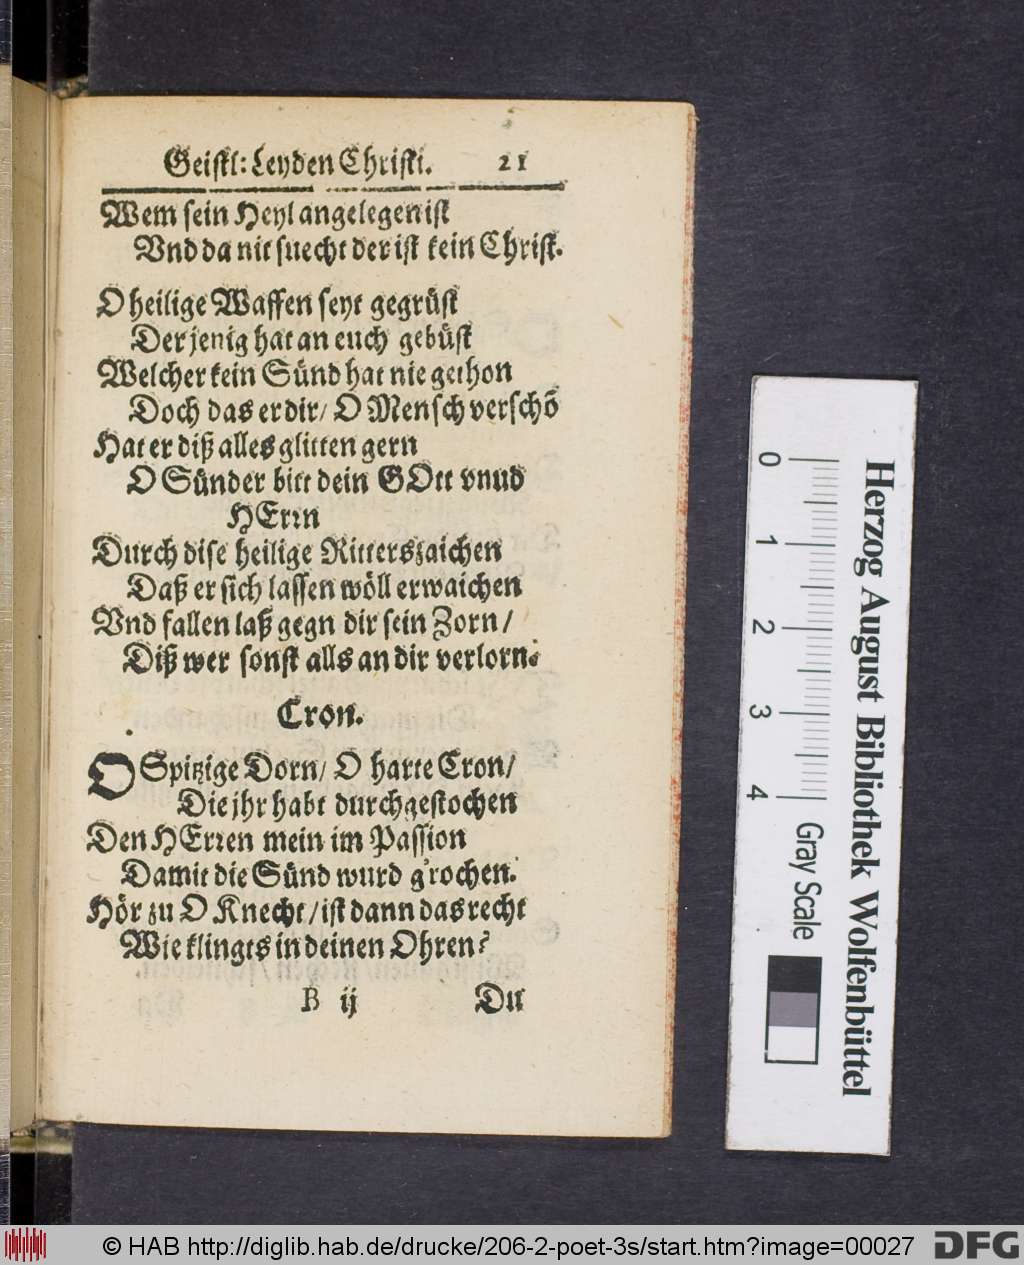 Geistl: Leyden Christi. 21
Wem sein Heyl angelegen ist
Vnd da nit suecht der ist kein Christ.
O heilige Waffen seyt gegrüst
Der jenig hat an euch gebüst
Welcher kein Sünd hat nie gethon
Doch das er dir/ O Mensch verschõ
Hat er diß alles glitten gern
O Sünder bitt dein GOtt vnud
HErrn
Durch dise heilige Ritterszaichen
Daß er sich lassen wöll erwaichen
Vnd fallen laß gegn dir sein Zorn/
Diß wer sonst alls an dir verlorn.
Cron.
O Spitzige Dorn/ O harte Cron/
Die jhr habt durchgestochen
Den HErren mein im Passion
Damit die Sünd wurd g'rochen.
Hör zu O Knecht/ ist dann das recht
Wie klingts in deinen Ohren?
B ij Du
Herzog August Bibliothek Wolfenbüttel
0 1 2 3 4 Gray Scale
© HAB http://diglib.hab.de/drucke/206-2-poet-3s/start.htm?image=00027 DFG